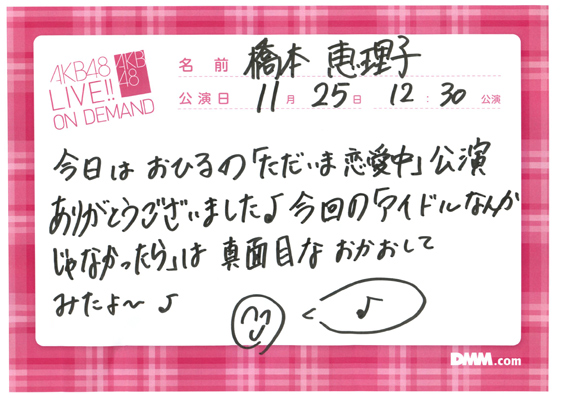 AKB48
LIVE!!
ON DEMAND
AKB
48
名前 橋本 恵理子
公演日 11月 25日 12:30 公演
今日は おひるの「ただいま恋愛中」公演
ありがとうございました♪ 今回の「アイドルなんか
じゃなかったら」は 真面目な おかおして
みたよ〜 ♪
♪
DMM.com